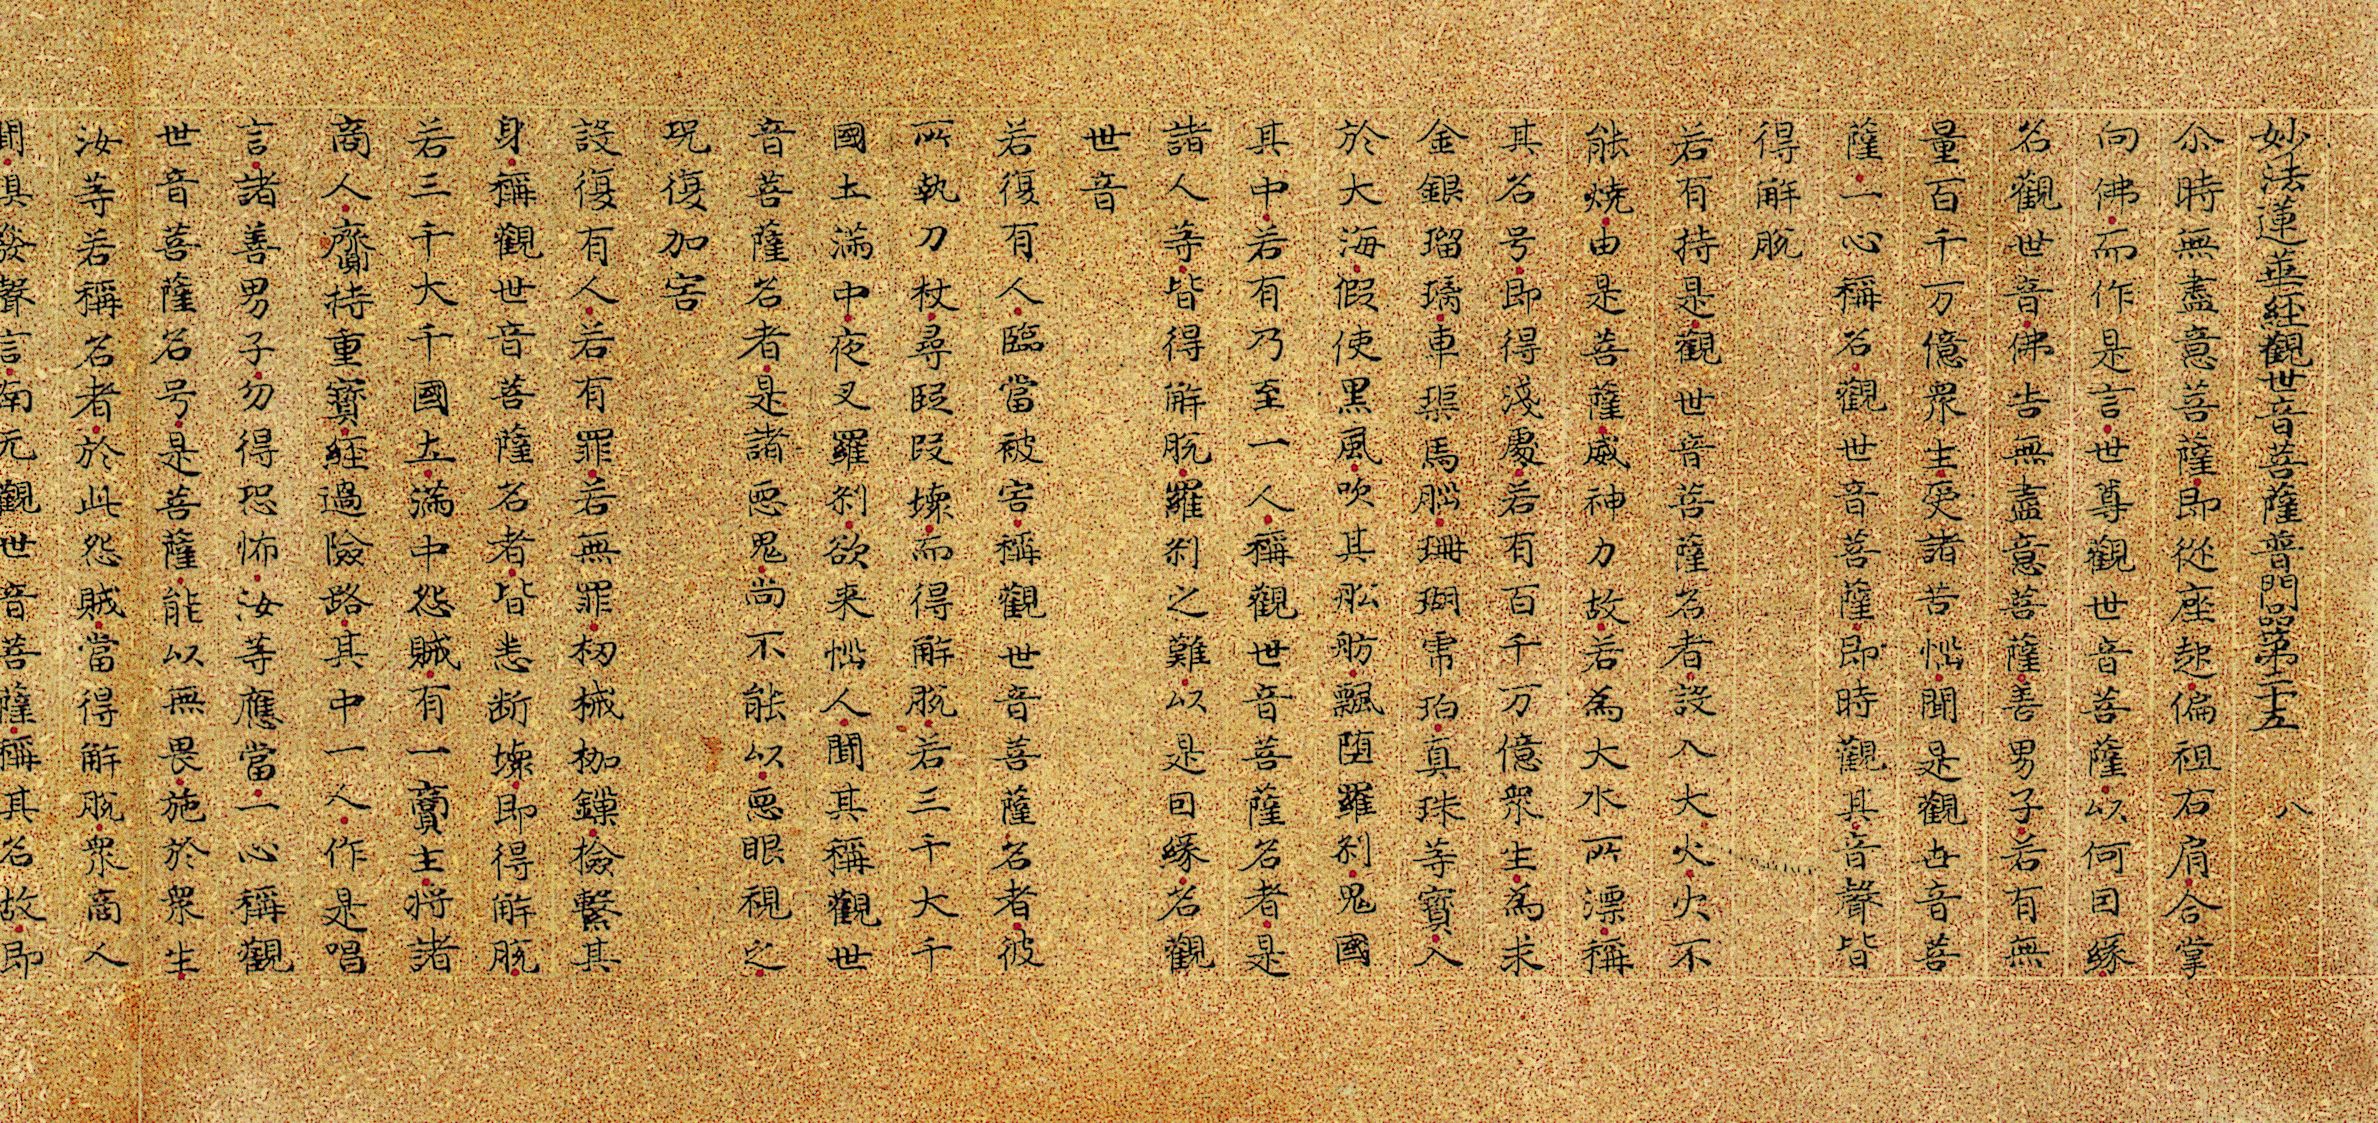 妙法蓮華經觀世音菩薩普門品第二十五 八
尒時無盡意菩薩即從座起偏袒右肩合掌
向佛而作是言世尊觀世音菩薩以何因緣
名觀世音佛告無盡意菩薩善男子若有無
量百千万億眾生受諸苦惱聞是觀世音菩
薩一心稱名觀世音菩薩即時觀其音聲皆
得解脫
若有持是觀世音菩薩名者設入大火火不
能燒由是菩薩威神力故若為大水所漂稱
其名号即得淺處若有百千万億眾生為求
金銀瑠璃車渠馬腦珊瑚虎珀真珠等寶入
於大海假使黑風吹其舩舫飄墮羅剎鬼國
其中若有乃至一人稱觀世音菩薩名者是
諸人等皆得解脫羅剎之難以是因緣名觀
世音
若復有人臨當被害稱觀世音菩薩名者彼
所執刀杖尋段段壞而得解脫若三千大千
國土滿中夜叉羅剎欲来惱人聞其稱觀世
音菩薩名者是諸惡鬼尚不能以惡眼視之
況復加害
設復有人若有罪若無罪杻械枷鏁撿繫其
身稱觀世音菩薩名者皆悉断壞即得解脫
若三千大千國土滿中怨賊有一商主將諸
商人齎持重寶經過險路其中一人作是唱
言諸善男子勿得恐怖汝等應當一心稱觀
世音菩薩名号是菩薩能以無畏施於眾生
汝等若稱名者於此怨賊當得解脫眾商人
聞俱發聲言南无觀世音菩薩稱其名故即